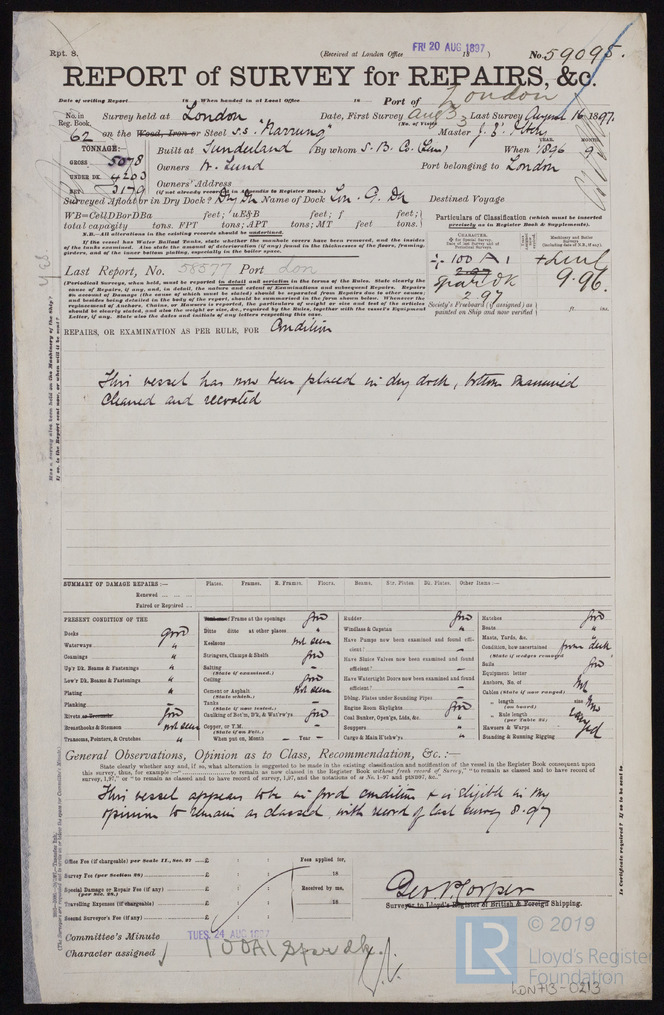 Rpt. 8.
(Received at London Office FRI 20 AUG 1897 18 )
No. 59095.
REPORT of SURVEY for REPAIRS, &c.
Date of writing Report 18 When handed in at Local Office 18 Port of London
No. in Reg. Book. Survey held at London Date, First Survey Aug 3 Last Survey August 16 1897
(No. of Visits 3
62 on the Wood, Iron or Steel S.S. "Narrung" Master
TONNAGE: Built at Sunderland By whom S. B. Co When 1896 9
YEAR. MONTH.
GROSS 5078
UNDER DK. 4203
NET 3179
Owners W. Lund Port belonging to London
Owners' Address
(if not already recorded in Appendix to Register Book.)
Surveyed Afloat or in Dry Dock? Dry Dk Name of Dock Lon. G. Dk Destined Voyage
WB=CellDBorDBa feet; uE&B feet; f feet;
total capacity tons. FPT tons; APT tons; MT feet tons.
N.B.—All alterations in the existing records should be underlined.
If the vessel has Water Ballast Tanks, state whether the manhole covers have been removed, and the insides
of the tanks examined. Also state the amount of deterioration (if any) found in the thicknesses of the floors, framing,
girders, and of the inner bottom plating, especially in the boiler space.
Particulars of Classification (which must be inserted
precisely as in Register Book & Supplements).
CHARACTER.
100 A 1
2.97
Spar dk
2.97
9.96.
Society's Freeboard (if assigned) as
painted on Ship and now verified ft. ins.
Last Report, No. 58577 Port Lon
(Periodical Surveys, when held, must be reported in detail and seriatim in the terms of the Rules. State clearly the
cause of Repairs, if any, and, in detail, the nature and extent of Examinations and subsequent Repairs. Repairs
on account of Damage (the cause of which must be stated) should be separated from Repairs due to other causes;
and besides being detailed in the body of the report, should be summarised in the form shown below. Whenever the
replacement of Anchors, Chains, or Hawsers is reported, the particulars of weight or size and test of the articles
should be clearly stated, and also the weight or size, &c., required by the Rules, together with the vessel's Equipment
Letter, if any. State also the dates and initials of any letters respecting this case.
REPAIRS, OR EXAMINATION AS PER RULE, FOR Condition
This vessel has now been placed in dry dock, bottom examined
cleaned and recoated
SUMMARY OF DAMAGE REPAIRS :— Plates. Frames. R. Frames. Floors. Beams. Str. Plates. Dk. Plates. Other Items :—
Renewed
Faired or Repaired
PRESENT CONDITION OF THE
Decks good
Waterways "
Coamings "
Up'r Dk. Beams & Fastenings "
Low'r Dk. Beams & Fastenings "
Plating "
Planking –
Rivets or Treenails good
Breasthooks & Stemson not seen
Transoms, Pointers, & Crutches "
Frame at the openings good
Ditto ditto at other places "
Keelsons not seen
Stringers, Clamps & Shelfs good
Salting –
(State if examined.)
Ceiling good
Cement or Asphalt not seen
(State which.)
Tanks –
(State if now tested.)
Caulking of Bot'm, D'k, & Wat'rw'ys good
Copper, or Y.M. –
(State if on Felt.)
When put on, Month – Year –
Rudder good
Windlass & Capstan "
Have Pumps now been examined and found efficient? –
Have Sluice Valves now been examined and found efficient? –
Have Watertight Doors now been examined and found efficient? –
Dblng. Plates under Sounding Pipes –
Engine Room Skylights good
Coal Bunker, Open'gs, Lids, &c. "
Scuppers "
Cargo & Main H'tchw'ys "
Hatches good
Boats "
Masts, Yards, &c. "
Condition, how ascertained from deck
(State if wedges removed
Sails good
Equipment letter
Anchors, No. of
Cables (State if now ranged)
" length size
(on board)
" Rule length
(per Table 24)
Hawsers & Warps
Standing & Running Rigging good
General Observations, Opinion as to Class, Recommendation, &c. :—
State clearly whether any, and if so, what alteration is suggested to be made in the existing classification and notification of the vessel in the Register Book consequent upon
this survey, thus, for example —" to remain as now classed in the Register Book without fresh record of Survey," "to remain as classed and to have record of
survey, 1,97," or "to remain as classed and to have record of survey, 1,97, and the notations of ss No. 1-97 and ptND97, &c."
This vessel appears to be in good condition & is eligible in my
opinion to remain as classed, with record of last survey 8.97
Office Fee (if chargeable) per Scale II., Sec. 27 £ : : Fees applied for,
Survey Fee (per Section 28) £ : : 18
Special Damage or Repair Fee (if any) £ : : Received by me,
(per Sec. 28.)
Travelling Expenses (if chargeable) £ : : 18
Second Surveyor's Fee (if any) £ : :
Surveyor to Lloyd's Register of British & Foreign Shipping.
Committee's Minute TUES. 24 AUG 1897
Character assigned 100A1 Spar dk.
© 2019
LR
Lloyd's Register
Foundation
LON713-0213